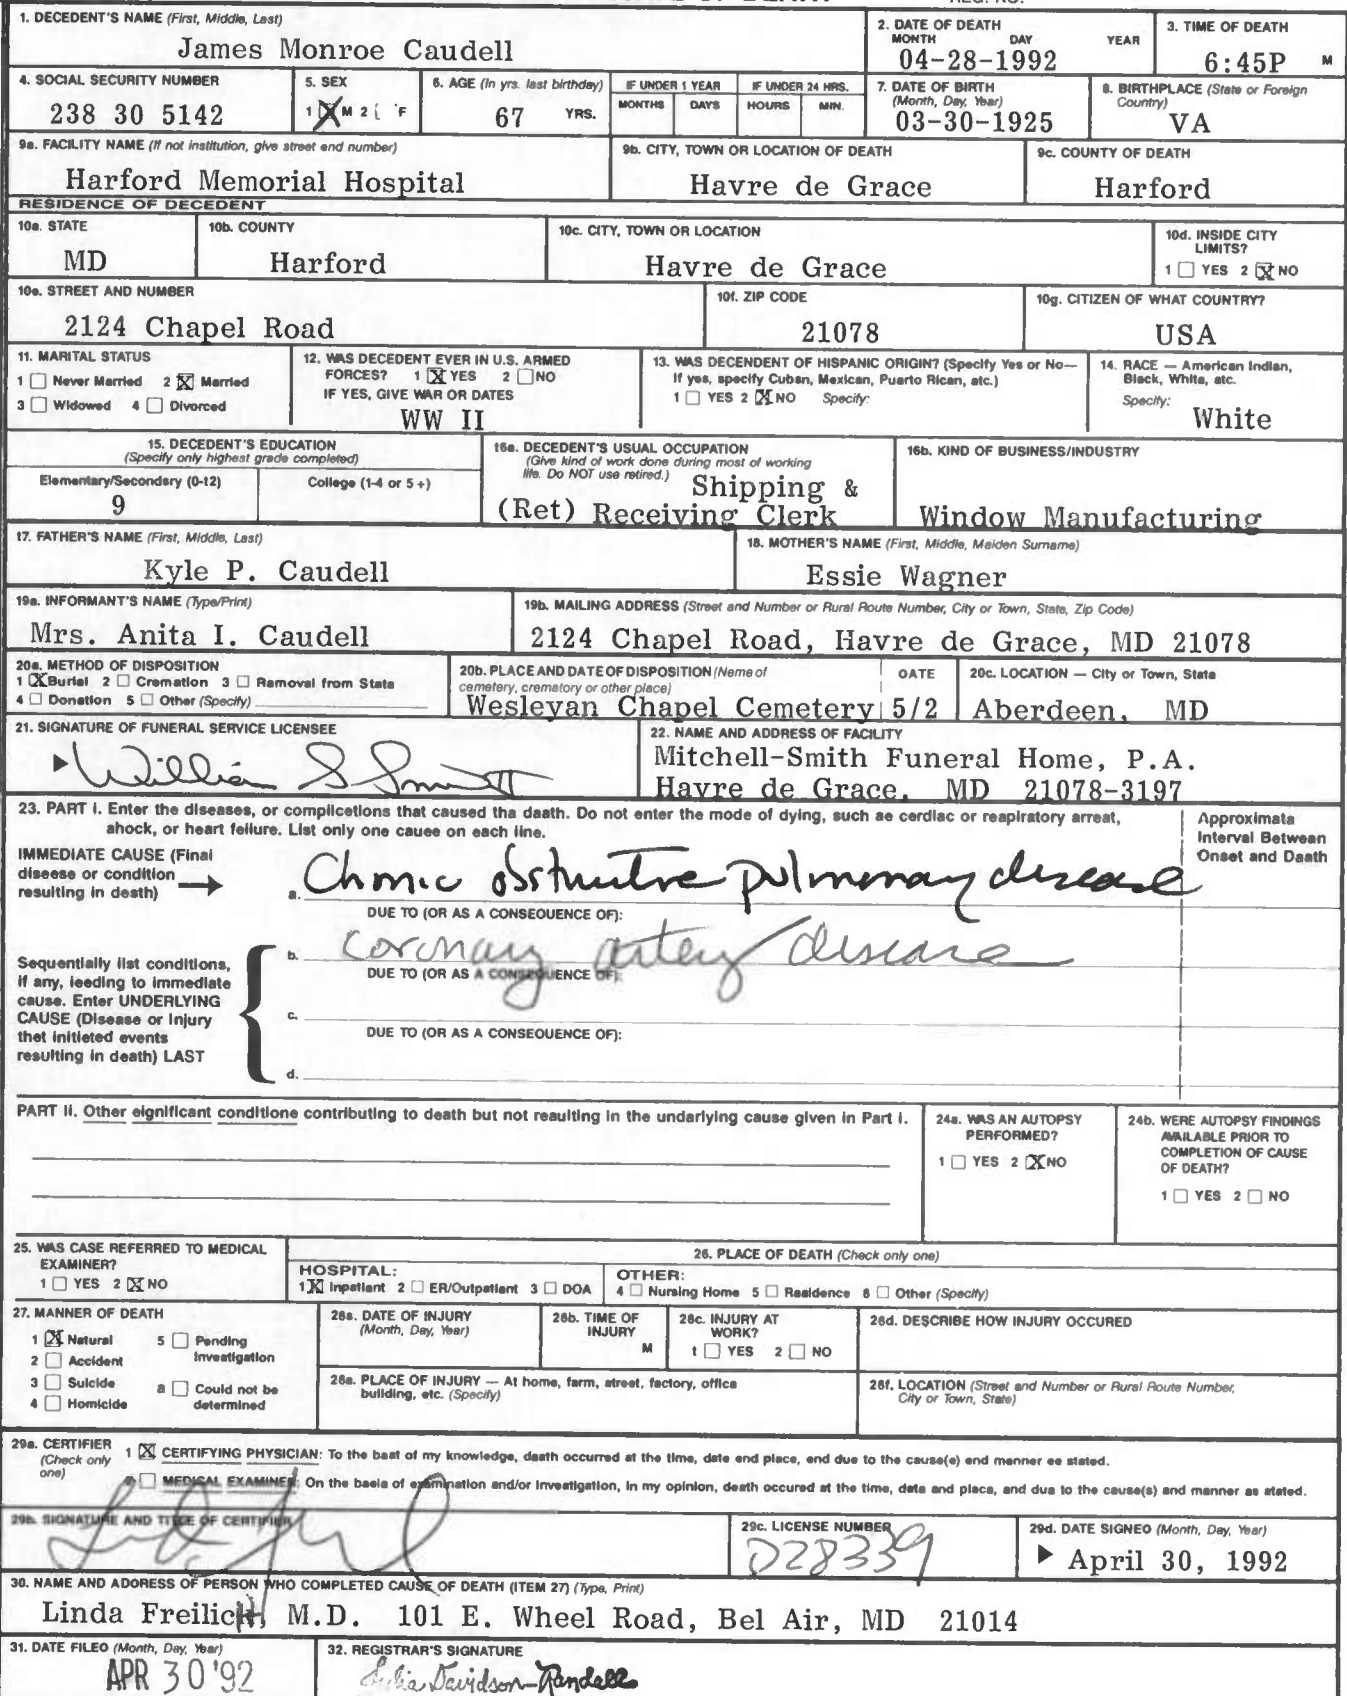 1. DECEDENT'S NAME (First, Middle, Last)
James Monroe Caudell
2. DATE OF DEATH
MONTH DAY YEAR
04-28-1992
3. TIME OF DEATH
6:45P M
4. SOCIAL SECURITY NUMBER
238 30 5142
5. SEX
1 X M 2 F
6. AGE (In yrs. last birthday)
67 YRS.
IF UNDER 1 YEAR
MONTHS DAYS
IF UNDER 24 HRS.
HOURS MIN.
7. DATE OF BIRTH
(Month, Day, Year)
03-30-1925
8. BIRTHPLACE (State or Foreign
Country)
VA
9a. FACILITY NAME (If not institution, give street and number)
Harford Memorial Hospital
9b. CITY, TOWN OR LOCATION OF DEATH
Havre de Grace
9c. COUNTY OF DEATH
Harford
RESIDENCE OF DECEDENT
10a. STATE
MD
10b. COUNTY
Harford
10c. CITY, TOWN OR LOCATION
Havre de Grace
10d. INSIDE CITY
LIMITS?
1 ☐ YES 2 ☒ NO
10e. STREET AND NUMBER
2124 Chapel Road
10f. ZIP CODE
21078
10g. CITIZEN OF WHAT COUNTRY?
USA
11. MARITAL STATUS
1 ☐ Never Married 2 ☒ Married
3 ☐ Widowed 4 ☐ Divorced
12. WAS DECEDENT EVER IN U.S. ARMED
FORCES? 1 ☒ YES 2 ☐ NO
IF YES, GIVE WAR OR DATES
WW II
13. WAS DECENDENT OF HISPANIC ORIGIN? (Specify Yes or No—
If yes, specify Cuban, Mexican, Puerto Rican, etc.)
1 ☐ YES 2 ☒ NO Specify:
14. RACE — American Indian,
Black, White, etc.
Specify:
White
15. DECEDENT'S EDUCATION
(Specify only highest grade completed)
Elementary/Secondary (0-12) College (1-4 or 5+)
9
16a. DECEDENT'S USUAL OCCUPATION
(Give kind of work done during most of working
life. Do NOT use retired.)
Shipping &
(Ret) Receiving Clerk
16b. KIND OF BUSINESS/INDUSTRY
Window Manufacturing
17. FATHER'S NAME (First, Middle, Last)
Kyle P. Caudell
18. MOTHER'S NAME (First, Middle, Maiden Surname)
Essie Wagner
19a. INFORMANT'S NAME (Type/Print)
Mrs. Anita I. Caudell
19b. MAILING ADDRESS (Street and Number or Rural Route Number, City or Town, State, Zip Code)
2124 Chapel Road, Havre de Grace, MD 21078
20a. METHOD OF DISPOSITION
1 ☒ Burial 2 ☐ Cremation 3 ☐ Removal from State
4 ☐ Donation 5 ☐ Other (Specify)
20b. PLACE AND DATE OF DISPOSITION (Name of
cemetery, crematory or other place)
Wesleyan Chapel Cemetery
DATE
5/2
20c. LOCATION — City or Town, State
Aberdeen, MD
21. SIGNATURE OF FUNERAL SERVICE LICENSEE
William S Smith
22. NAME AND ADDRESS OF FACILITY
Mitchell-Smith Funeral Home, P.A.
Havre de Grace, MD 21078-3197
23. PART I. Enter the diseases, or complications that caused the death. Do not enter the mode of dying, such as cardiac or respiratory arrest,
shock, or heart failure. List only one cause on each line.
Approximate
Interval Between
Onset and Death
IMMEDIATE CAUSE (Final
disease or condition
resulting in death)
a. Chronic obstructive pulmonary disease
DUE TO (OR AS A CONSEQUENCE OF):
b. coronary artery disease
DUE TO (OR AS A CONSEQUENCE OF):
c.
DUE TO (OR AS A CONSEQUENCE OF):
d.
Sequentially list conditions,
if any, leading to immediate
cause. Enter UNDERLYING
CAUSE (Disease or Injury
that initiated events
resulting in death) LAST
PART II. Other significant conditions contributing to death but not resulting in the underlying cause given in Part I.
24a. WAS AN AUTOPSY
PERFORMED?
1 ☐ YES 2 ☒ NO
24b. WERE AUTOPSY FINDINGS
AVAILABLE PRIOR TO
COMPLETION OF CAUSE
OF DEATH?
1 ☐ YES 2 ☐ NO
25. WAS CASE REFERRED TO MEDICAL
EXAMINER?
1 ☐ YES 2 ☒ NO
26. PLACE OF DEATH (Check only one)
HOSPITAL:
1 ☒ Inpatient 2 ☐ ER/Outpatient 3 ☐ DOA
OTHER:
4 ☐ Nursing Home 5 ☐ Residence 6 ☐ Other (Specify)
27. MANNER OF DEATH
1 ☒ Natural 5 ☐ Pending
Investigation
2 ☐ Accident
3 ☐ Suicide 6 ☐ Could not be
determined
4 ☐ Homicide
28a. DATE OF INJURY
(Month, Day, Year)
28b. TIME OF
INJURY
M
28c. INJURY AT
WORK?
1 ☐ YES 2 ☐ NO
28d. DESCRIBE HOW INJURY OCCURED
28e. PLACE OF INJURY — At home, farm, street, factory, office
building, etc. (Specify)
28f. LOCATION (Street and Number or Rural Route Number,
City or Town, State)
29a. CERTIFIER
(Check only
one)
1 ☒ CERTIFYING PHYSICIAN: To the best of my knowledge, death occurred at the time, date and place, and due to the cause(s) and manner as stated.
☐ MEDICAL EXAMINER: On the basis of examination and/or investigation, in my opinion, death occured at the time, date and place, and due to the cause(s) and manner as stated.
29b. SIGNATURE AND TITLE OF CERTIFIER
29c. LICENSE NUMBER
D28339
29d. DATE SIGNED (Month, Day, Year)
April 30, 1992
30. NAME AND ADDRESS OF PERSON WHO COMPLETED CAUSE OF DEATH (ITEM 27) (Type, Print)
Linda Freilich, M.D. 101 E. Wheel Road, Bel Air, MD 21014
31. DATE FILED (Month, Day, Year)
APR 30 '92
32. REGISTRAR'S SIGNATURE
Julia Davidson-Randall